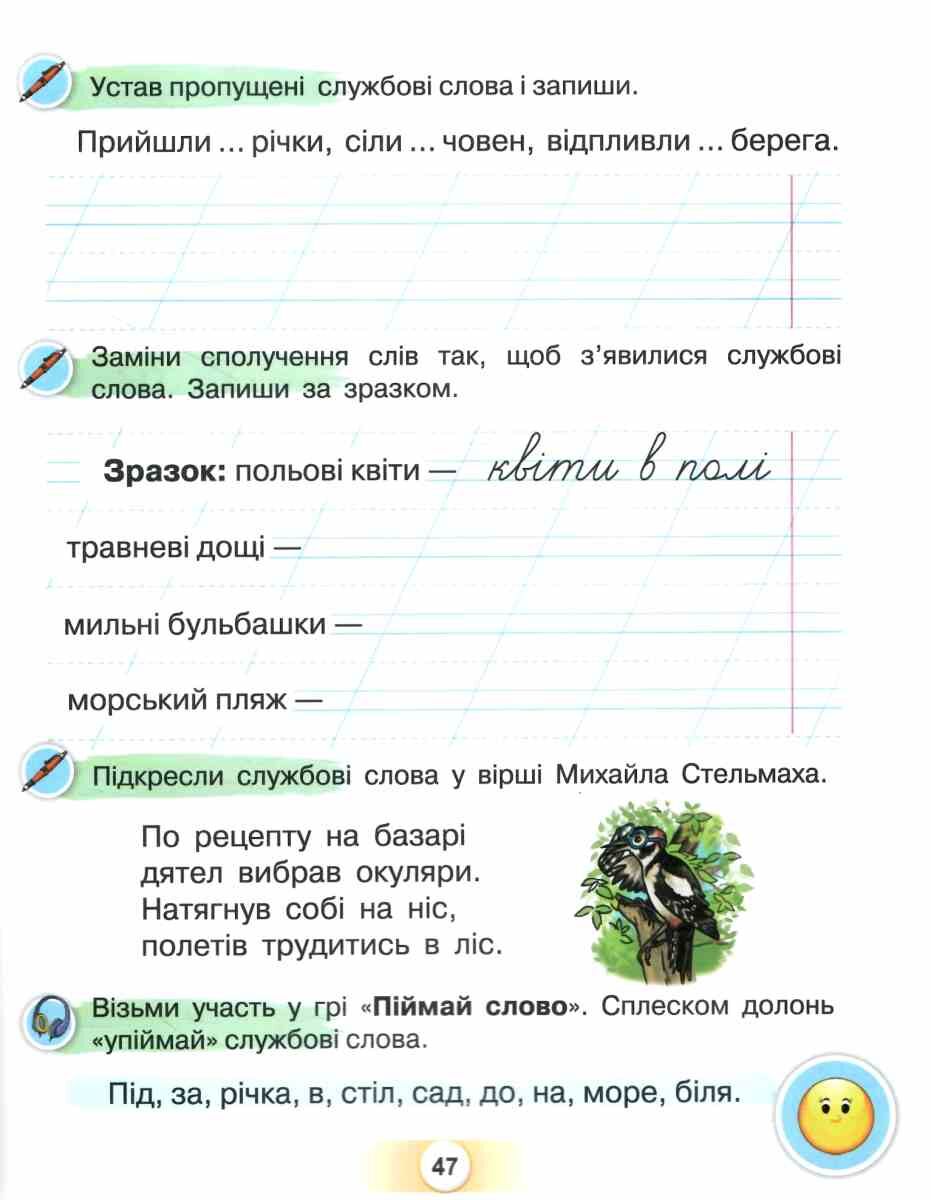 Устав пропущені службові слова і запиши.
Прийшли ... річки, сіли ... човен, відпливли ... берега.
Заміни сполучення слів так, щоб з’явилися службові
слова. Запиши за зразком.
Зразок: польові квіти — квіти в полі
травневі дощі —
мильні бульбашки —
морський пляж —
Підкресли службові слова у вірші Михайла Стельмаха.
По рецепту на базарі
дятел вибрав окуляри.
Натягнув собі на ніс,
полетів трудитись в ліс.
Візьми участь у грі «Піймай слово». Сплеском долонь
«упіймай» службові слова.
Під, за, річка, в, стіл, сад, до, на, море, біля.
47